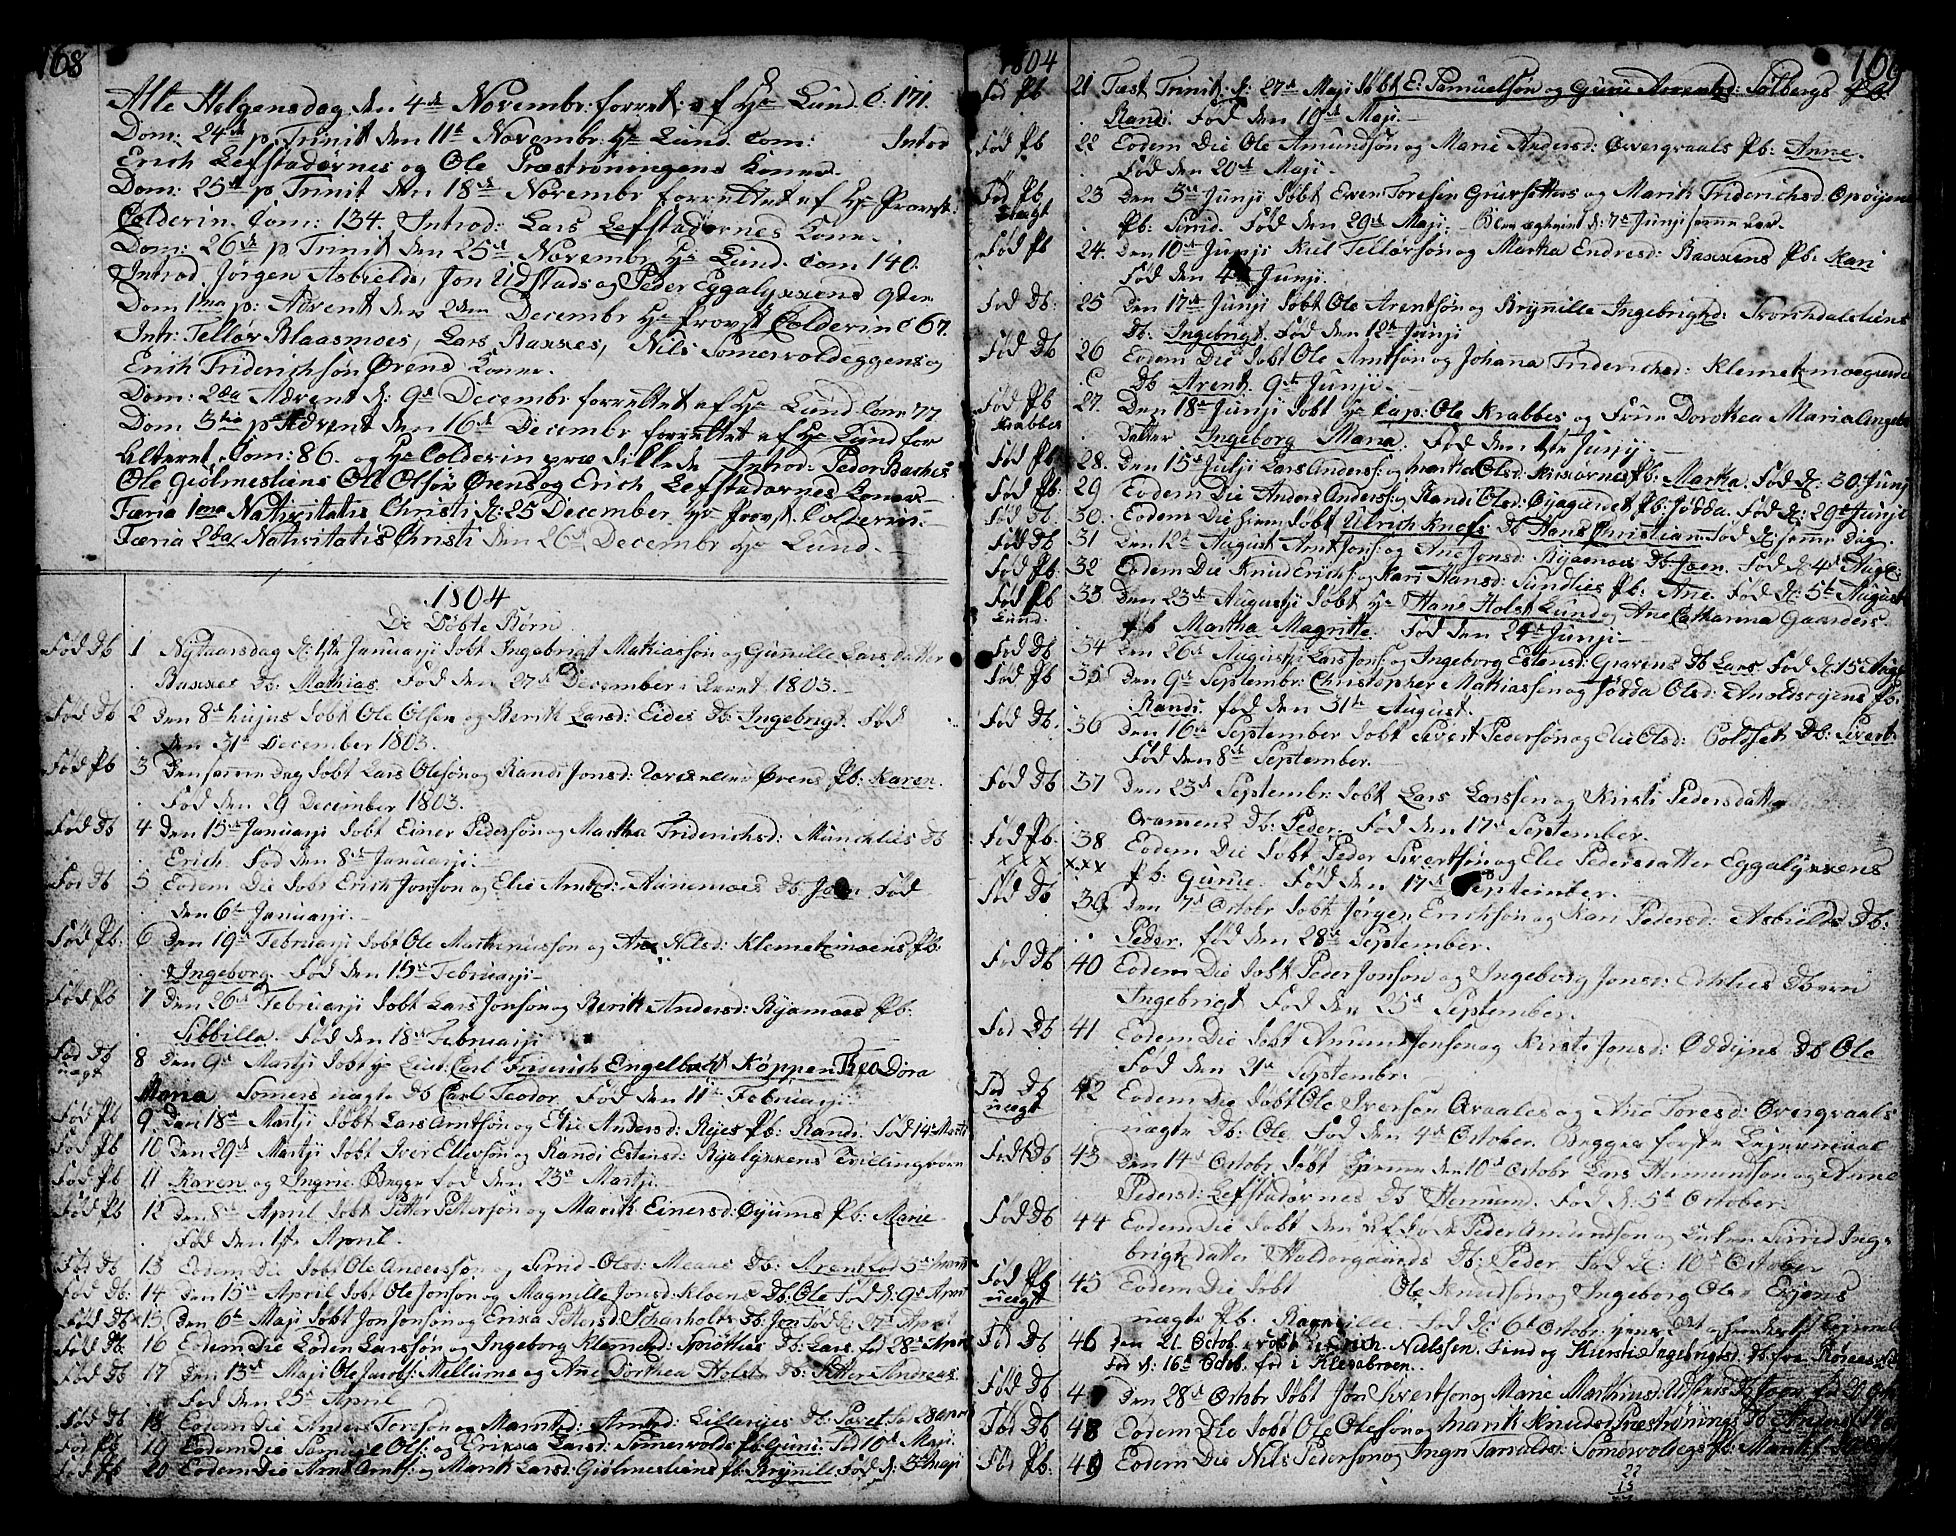 168
Alle Helgensdag den 4de Novembr: forret: af Hr Lund. C. 171.
Dom: 24de p. Trinit den 11te Novembr: Hr Lund. Com: Introd
Erich Lefstadørnes og Ole Præstrøningens Koner.
Dom: 25de p Trinit den 18de Novembr forrettet af Hr Provst:
Colderin. Com: 134. Introd: Lars Lefstadørnes Kone.
Dom: 26de p Trinit den 25de Novembr Hr Lund. Com 140.
Introd Jørgen Asbields, Jon Udstads og Peder Eggalyxens Qder
Dom 1ma p: Advent den 2den Decembr Hr Provst Colderin C 67.
Intr: Tellør Blaasmoes, Lars Raxxes, Nils Somervoldeggens og
Erich Friderichsøn Ørens Koner.
Dom: 2da Advent d: 9de Decembr forrettet af Hr Lund Com 77
Dom 3tia p Advent den 16de Decembr forrettet af Hr Lund for
Alteret. Com: 86. og Hr Colderin præ dikede Introd: Peder Backes
Ole Giølmesliens Ole Olsøn Ørens og Erich Lefstadørnes Koner
Færia 1ma Nativitatis Christi d: 25 December Hr Provst. Colderin.
Færia 2da Nativitatis Christi den 26de Decembr Hr Lund.
1804
De Døbte Børn
Fød Db 1 Nytaarsdag d: 1ste Januarji døbt Ingebrigt Mathiassøn og Gunnille Larsdatter
Raxxes Db: Mathias. Fød den 27de December i Aaret 1803.
Fød Db 2 Den 8de hujus døbt Ole Olsen og Berith Larsd: Eides Db: Ingebrigt. Fød
den 31te December 1803.
Fød Pb 3 Den samme Dag døbt Lars Olesøn og Randi Jonsd: Ørens Pb: Karen
Fød den 29 December 1803.
Fød Db 4 Den 15de Januarji døbt Einer Pedersøn og Martha Friderichsd: Munchlies Db
Erich. Fød den 8de Januarji.
Fød Db 5 Eodem Die døbt Erich Jonsøn og Elie Arntzd: Aunemoes Db Joen Fød
den 6te Januarji.
Fød Pb. 6 Den 19de Februarji døbt Ole Marthenussøn og Ane Nilsd: Klemetzmoens Pb:
Ingeborg. Fød den 15de Februarji
Fød Pb 7 Den 26de Februarji døbt Lars Jonsøn og Berith Andersd: Byamoes Pb:
Sibbilla. Fød den 18de Februarji
Fød Db uægt 8 Den 9de Martji døbt Hr Leut: Carl Friderich Engelbret Køppen Theodora
Maria Somers uægte Db Carl Teodor. Fød den 11te Februarji
Fød Pb 9 Den 18de Martji døbt Lars Arntsøn og Elie Andersd: Ryes Pb: Randi. Fød 14de Martji
Fød Pb 10 Den 29de Martji døbt Iver Ellevsøn og Randi Estensd: Byalyxxens Tvillingbørn
Fød Pb 11 Karen og Ingrie. Begge fød den 23de Martji.
Fød Pb 12 Den 8de April døbt Petter Pettersøn og Marith Einersd: Øyums Pb: Marie
Fød den 1ste April.
Fød Db 13 Eodem Die døbt Ole Andersøn og Sirrid Olsd: Meaas Db: Arent Fød
Fød Db: 14 Den 15de April døbt Ole Jonsøn og Magnille Jonsd: Kloens Db: Ole Fød d: 9de April
Fød Db 15 Den 6te Maji døbt Jon Jonsøn og Erixa Pettersd: Scharholts Db: Jon Fød d: 27de
Fød Db. 16 Eodem Die Loden Larssøn og Ingeborg Klemetsd: Db: Lars fød 28de April
Fød Db 17 Den 13de Maji Ole Jacobs: Mellums og Ane Dorthea Holst Db: Petter Andreas
Fød den 25de April
Fød Db 18 Eodem Die Anders Toresøn og Arntzd: Lilleryes Db: Fød 28 April
Fød Pb 19 Eodem Die Samuel Ols: og Erixa Larsd: Somervolds Pb Guru: Fød 10de Maji.
Fød Pb 20 Eodem Die Arnt Arntz: og Marith Larsd: Giølmesliens Pb. Brynille. Fød d:
1804 169
Fød Pb 21 Fæst Trinit: d: 27de Maji døbt E: Samuelsøn og Guru Arentzd: Solbergs Pb:
Randi. Fød den 10de Maji.
Fød Pb 22 Eodem Die Ole Amundsøn og Marie Andersd: Øvergraals Pb: Anne.
Fød den 20de Maji.
Fød Pb Uægt 23 Den 3de Junji døbt Even Toresen Gruxsetters og Marith Friderichsd: Opøyens
Pb: Sirrid. Fød den 29de Maji. Blev ægteviet d: 7de Junji samme aar.
Fød Pb 24. Den 10de Junji Kiel Tellørsøn og Martha Endresd: Raxxens Pb: Kari
Fød den 4de Junji.
Fød Db. 25 Den 17de Junji døbt Ole Arentsøn og Brynille Ingebrigtd: Svorchdalsliens
Db: Ingebrigt. Fød den 12te Junji
Fød Db 26 Eodem Die døbt Ole Arntsøn og Johana Friderichsd: Klemetzmoegierde
Db Arent. 9de Junji.
Fød Pb Krabbes 27. Den 18de Junji døbt Hr Cap: Ole Krabbes og Frue Dorothea Maria
datter Ingeborg Maria. Fød den 1ste Junji.
Fød Pb 28. Den 15de Julji Lars Anders: og Marith Olsd: Pb: Martha. Fød d: 30 Junji
Fød Pb. 29 Eodem Die Anders Anders: og Randi Olsd: Øyagierdet Pb: Jødda. Fød d: 29de Junji
Fød Db 30. Eodem Die døbt Ulrich Knefs: Db Hans Christian Fød d: samme Dag.
Fød Db 31 Den 12te August Arnt Jons: og Ane Jonsd: Byamoes Db Joen. Fød d: 4de Aug:
Fød Pb 32 Eodem Die Knud Erichs: og Kari Hansd: Sundlies Pb: Ane. Fød d: 5te August
Fød Pb Lund. 33 Den 23de Augustji døbt Hr Hans Holst Lund og Ane Catharina Gaarders
Pb Martha Magritte. Fød den 24de Junji
Fød Db 34 Den 26de Augustji Lars Jons: og Ingeborg Estensd: Grarens Db Lars. Fød d: 15de Aug
Fød Pb 35 Den 9de Septembr: Christopher Mathiassen og Jødda Olsd: Anoldsøyens Pb:
Randi. fød den 31te August.
Fød Db. 36 Den 16de September døbt Sivert Pedersøn og Elie Olsd: Goldset Db: Sivert
Fød den 8de September.
Fød Db 37 Den 23de Septembr: døbt Lars Larssen og Kirsti Pedersdatter
Qvammens Db: Peder. Fød den 17de September.
Fød Pb. 38 Eodem Die døbt Peder Sivertsøn og Elie Pedersdatter Eggalyxxens
x x x xxx Pb: Gurue. Fød den 17de September.
Fød Db 39 Den 7de Octobr døbt Jørgen Erichsøn og Kari Pedersd: Asbields Db:
Peder. fød den 28de September.
Fød Db 40 Eodem Die døbt Peder Jonsøn og Ingeborg Jonsd: Echlies Db
Ingebrigt Fød den 25de September.
Fød Db 41 Eodem Die døbt Amund Jonsøn og Kirsti Jonsd: Oddyns Db Ole
Fød den 21de Septembr.
Fød Db uægt 42 Eodem Die døbt Ole Iversøn Qvaales og Ane Toresd: Øvergraals
uægte Db: Ole. Fød den 4de October. Begges første Leyermaal
Født Db 43 Den 14de Octobr døbt hiemme den 10de Octobr Lars Hermundsøn og Anne
Pedersd: Lefstadørnes Db Hermund. Fød d: 5te October.
Fød Db 44 Eodem Die døbt den Peder Amundsøn og Sirrid Ing-
brigtzdatter Haldorgaards Db: Peder. Fød d: 10de October
Fød Pb uægt 45 Eodem Die døbt Ole Knudsøn og Ingeborg Olsd Eyens
uægte Pb. Magnille. Fød d: 6te Octobr.
Fød Db 46 Den 21. Octob. døbt Erich Nielssen Lind og Kiersti Ingebrigtsd. Db fra Røraas
Fød d: 16de Octob. fød i Klevebroen.
Fød Db 47 Den 28de Octobr døbt Jon Sivertsøn og Marie Marthinsd: Udstads Db Joen
Fød Db 48 Eodem Die døbt Ole Olesøn og Marith Knudsd Præstrønings Db Anders
Fød Pb. 49 Eodem Die Nils Pedersøn og Ingri Somervoldegs Pb Marith
22
15